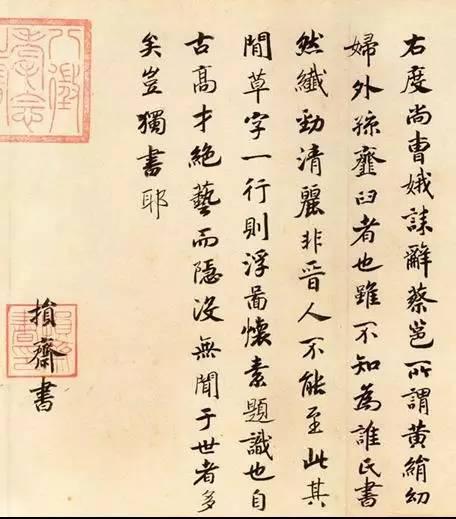 右度尚曹娥誄辭蔡邕所謂黃絹幼
婦外孫虀臼者也雖不知為誰氏書
然纖勁清麗非晉人不能至此其
間草字一行則浮啚懷素題識也自
古高才絕藝而隱沒無聞于世者多
矣豈獨書耶
損齋書
損齋書印